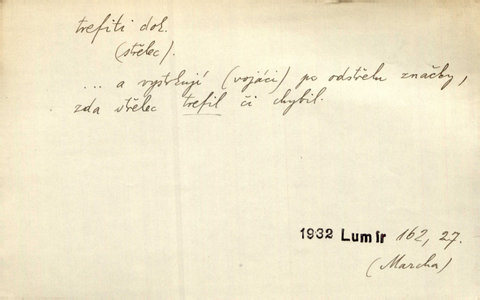 trefiti dok.
(střelec).
... a vystrkují (vojáci) po odstřelu značky,
zda střelec trefil či chybil.
1932 Lumír 162, 27.
(Marcha)